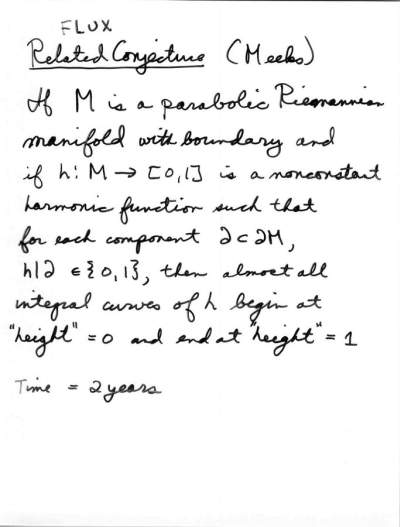 FLUX
Related Conjecture (Meeks)
If M is a parabolic Riemannian
manifold with boundary and
if h: M → [0,1] is a nonconstant
harmonic function such that
for each component ∂ ⊂ ∂M,
h|∂ ∈ {0,1}, then almost all
integral curves of h begin at
"height" = 0 and end at "height" = 1
Time = 2 years